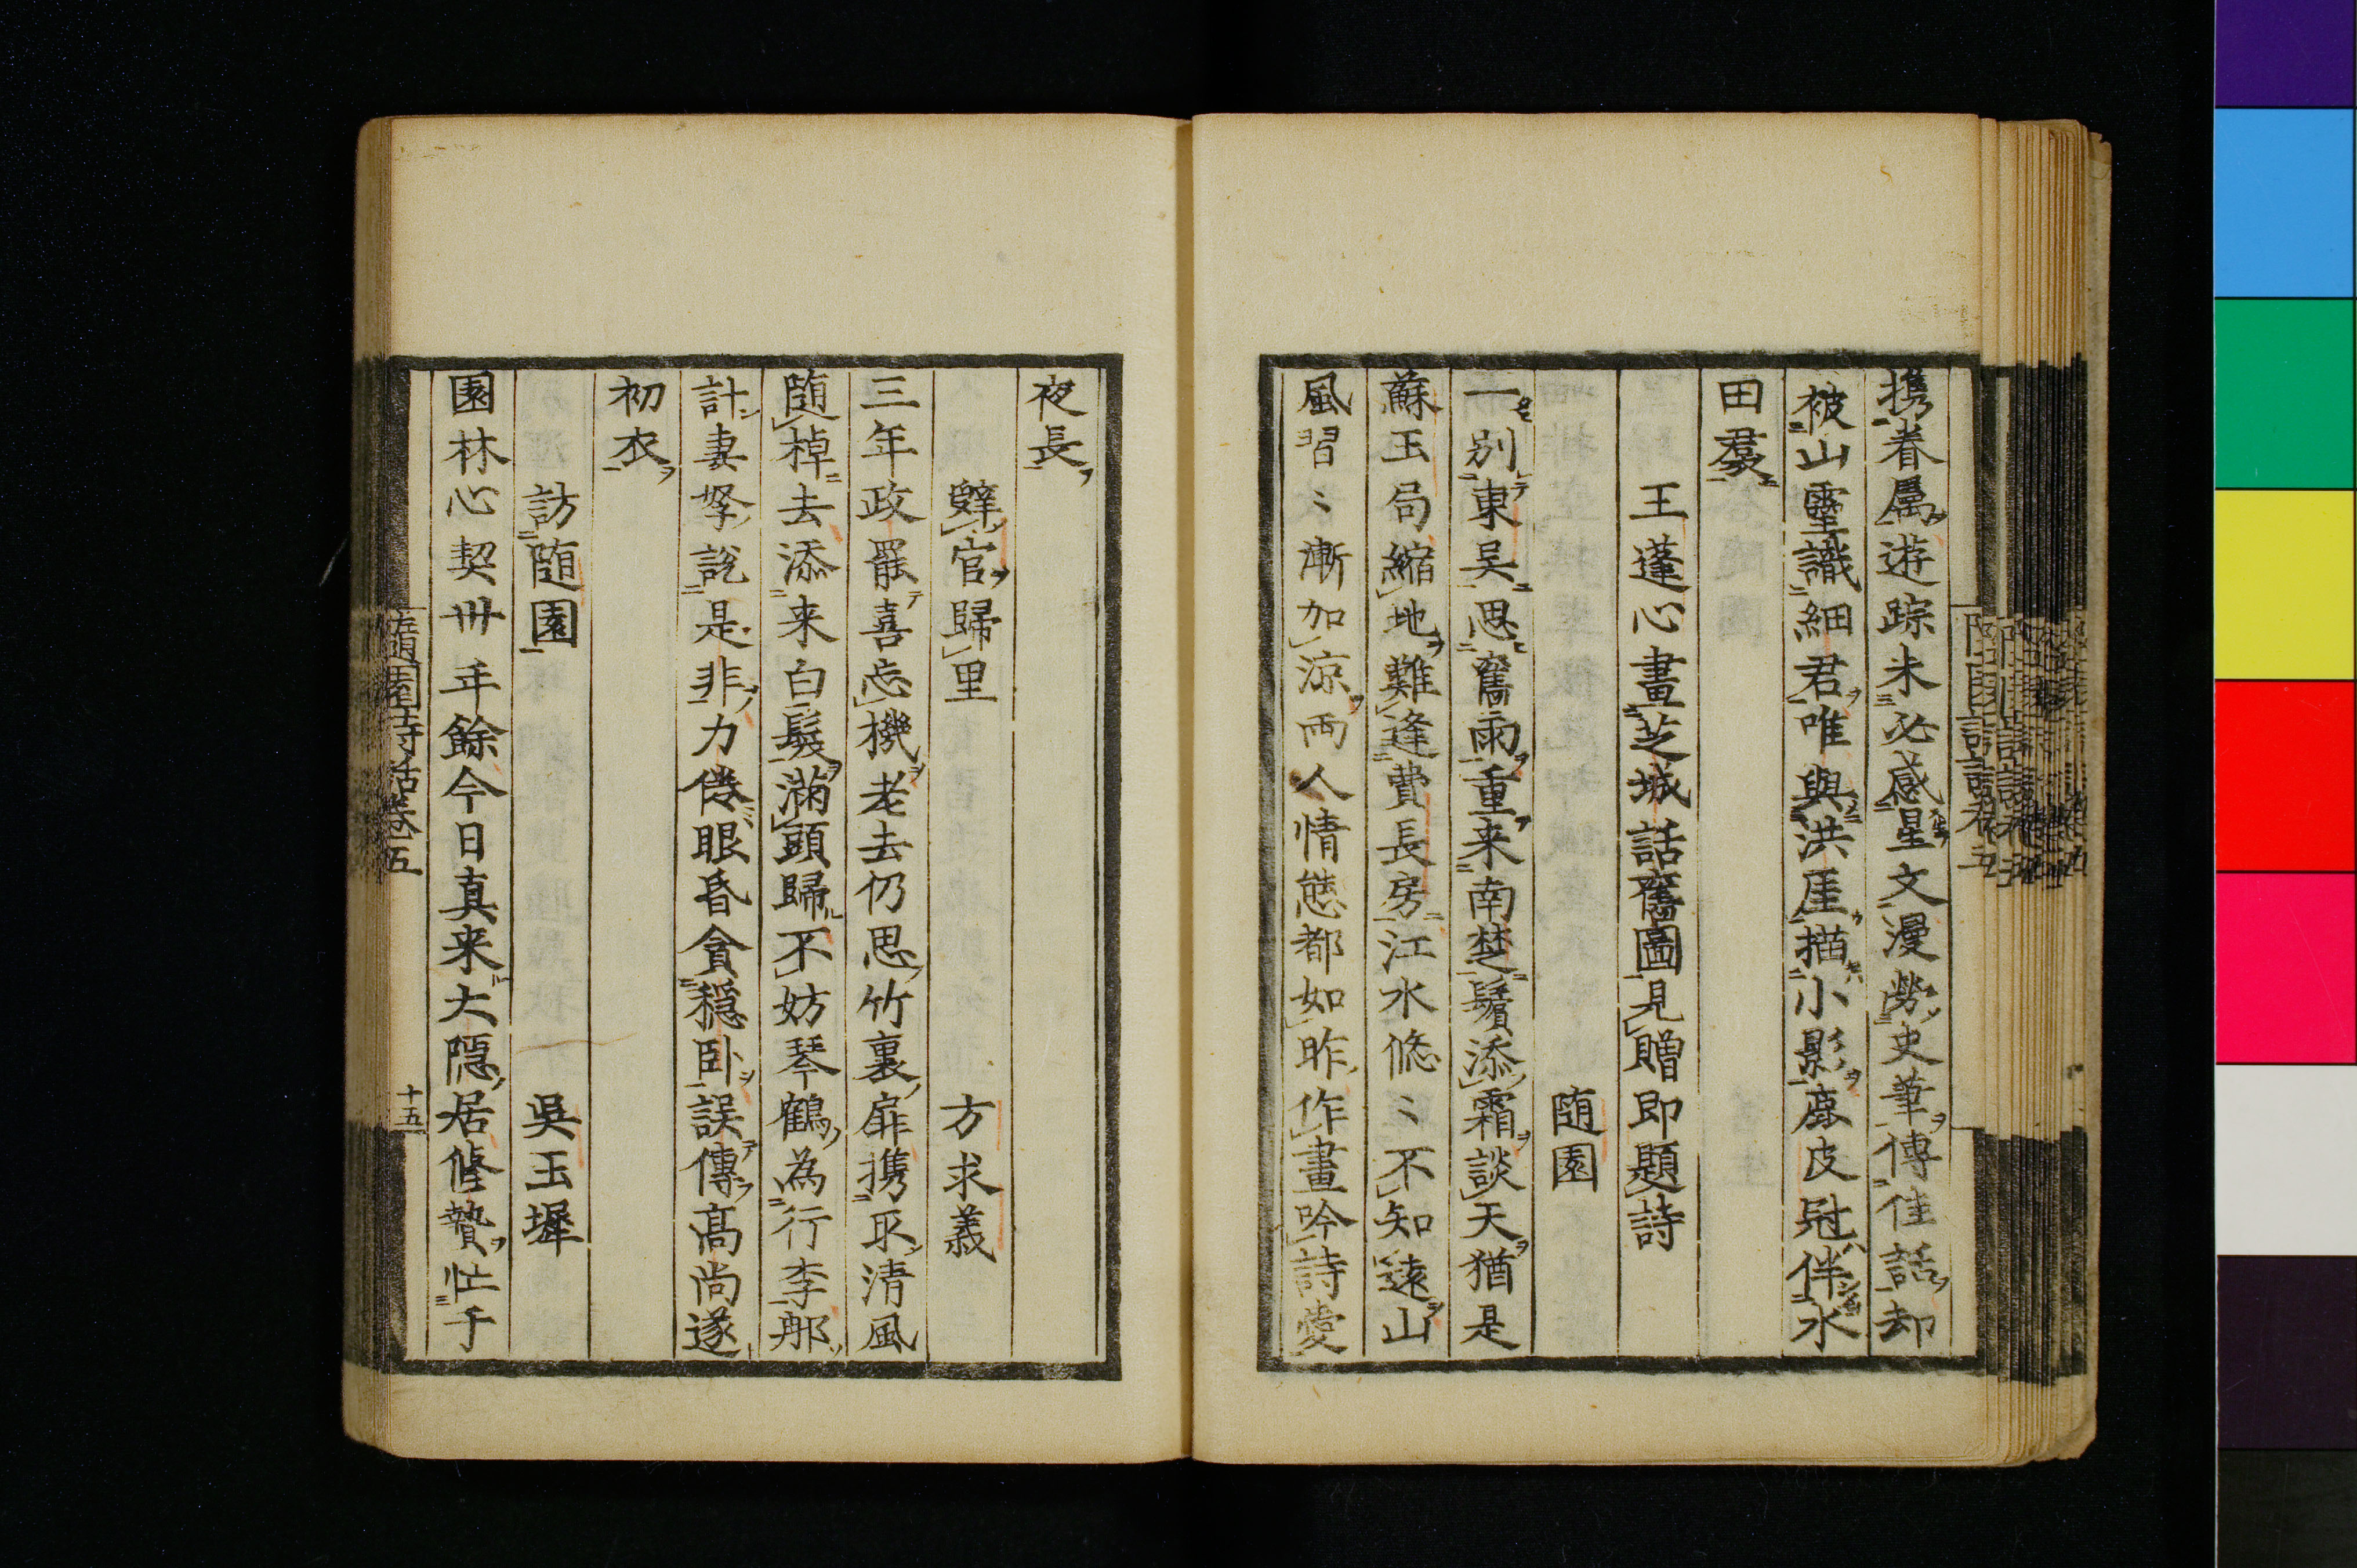 携眷属遊踪未必感星文漫勞史筆傳佳話却
被山靈識細君唯與洪厓描小影鹿皮冠伴水
田裙
王蓬心畫芝城話舊圖見贈即題詩
随園
一別東吴思舊雨重来南楚鬢添霜談天猶是
蘇玉局縮地難逢費長房江水悠〻不知遠山
風習〻漸加涼両人情態都如昨作畫吟詩愛
夜長
辭官歸里
方求義
三年政罷喜忘機老去仍思竹裏扉携取清風
随棹去添来白髮滿頭歸不妨琴鶴為行李那
計妻孥說是非力倦眼昏貪穏卧誤傳高尚遂
初衣
訪随園
吳玉墀
園林心契卅年餘今日真来大隠居修贄忙于
隨園詩話卷五
十五